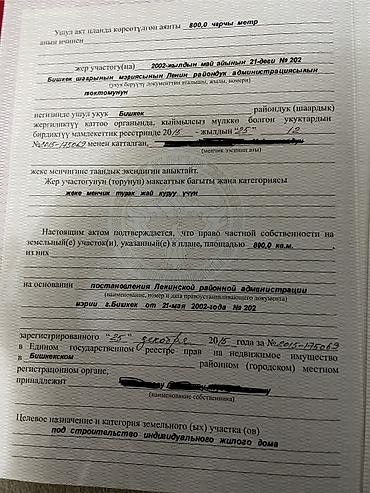 Ушул акт планда көрсөтүлгөн аянты 800,0 чарчы метр
анын ичинен
жер участогу(на) 2002-жылдын май айынын 21-деги № 202
Бишкек шаарынын мэриясынын Ленин райондук администрациясынын
(укук берүүчү документтин аталышы, жылы, номери)
токтомунун
негизинде ушул укук Бишкек райондук (шаардык)
жергиликтүү каттоо органында, кыймылсыз мүлккө болгон укуктардын
бирдиктүү мамлекеттик реестринде 2015 - жылдын "25" 12
№2015-175069 менен катталган,
(менчик ээсинин аты)
жеке менчигине таандык экендигин аныктайт.
Жер участогунун (торунун) максаттык багыты жана категориясы
жеке менчик турак жай куруу үчүн
Настоящим актом подтверждается, что право частной собственности на
земельный(е) участок(и), указанный(е) в плане, площадью 800,0 кв.м.
из них
на основании постановления Ленинской районной администрации
(наименование, номер и дата правоустанавливающего документа)
мэрии г.Бишкек от 21-мая 2002-года № 202
зарегистрированного "25" декабря 2015 года за №2015-175069
в Едином государственном реестре прав на недвижимое имущество
в Бишкекском районном (городском) местном
регистрационном органе,
принадлежит
(наименование собственника)
Целевое назначение и категория земельного (ых) участка (ов)
под строительство индивидуального жилого дома